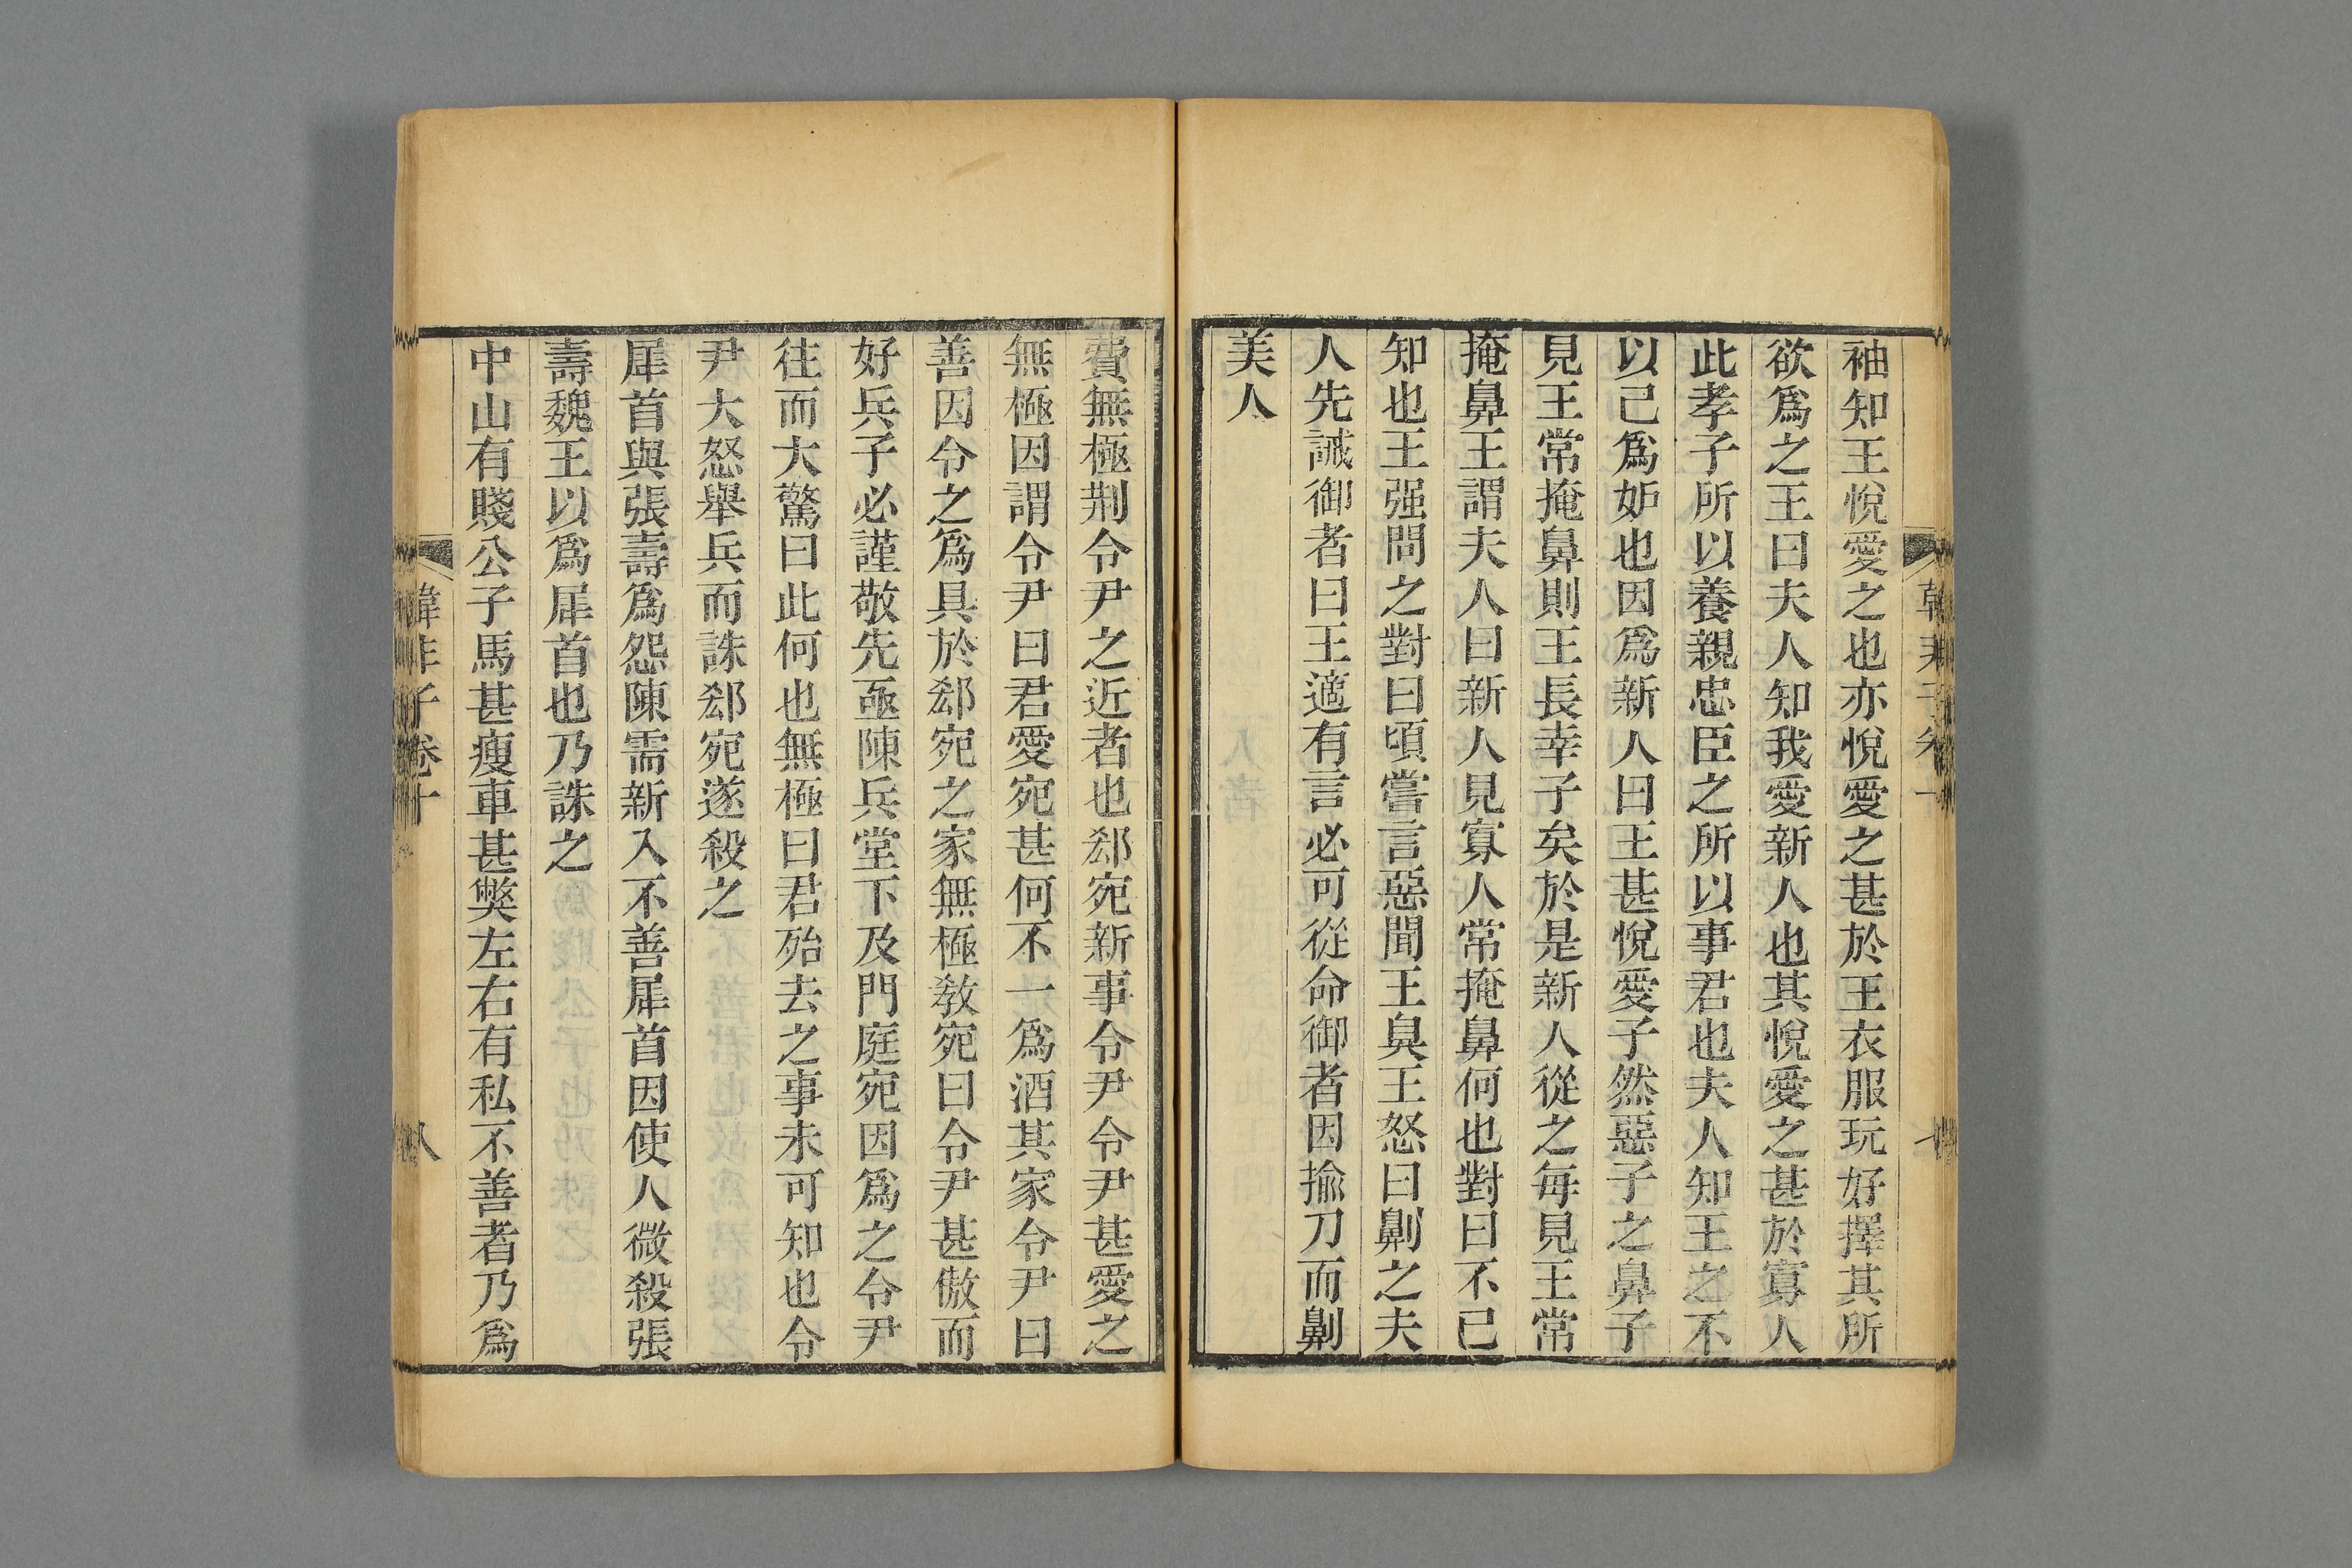 袖知王悅愛之也亦悅愛之甚於王衣服玩好擇其所
欲爲之王曰夫人知我愛新人也其悅愛之甚於寡人
此孝子所以養親忠臣之所以事君也夫人知王之不
以己爲妒也因爲新人曰王甚悅愛子然惡子之鼻子
見王常掩鼻則王長幸子矣於是新人從之每見王常
掩鼻王謂夫人曰新人見寡人常掩鼻何也對曰不已
知也王强問之對曰頃嘗言惡聞王臭王怒曰劓之夫
人先誡御者曰王適有言必可從命御者因揄刀而劓
美人
費無極荆令尹之近者也郄宛新事令尹令尹甚愛之
無極因謂令尹曰君愛宛甚何不一爲酒其家令尹曰
善因令之爲具於郄宛之家無極敎宛曰令尹甚傲而
好兵子必謹敬先亟陳兵堂下及門庭宛因爲之令尹
往而大驚曰此何也無極曰君殆去之事未可知也令
尹大怒舉兵而誅郄宛遂殺之
犀首與張壽爲怨陳需新入不善犀首因使人微殺張
壽魏王以爲犀首也乃誅之
中山有賤公子馬甚瘦車甚獘左右有私不善者乃爲
韓非子卷十
八